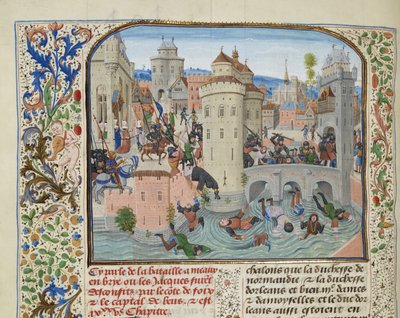 Cy parle de la bataille a meaulx
en brye ou les Jacques furet
desconfis par le côte de foix
z le captal de beus, z est
Chapitre
chalons que la duchesse de
normandie z la duchesse
dorleans et bien iijc dames
z damoyselles et le duc dor
leans aussi estoient en